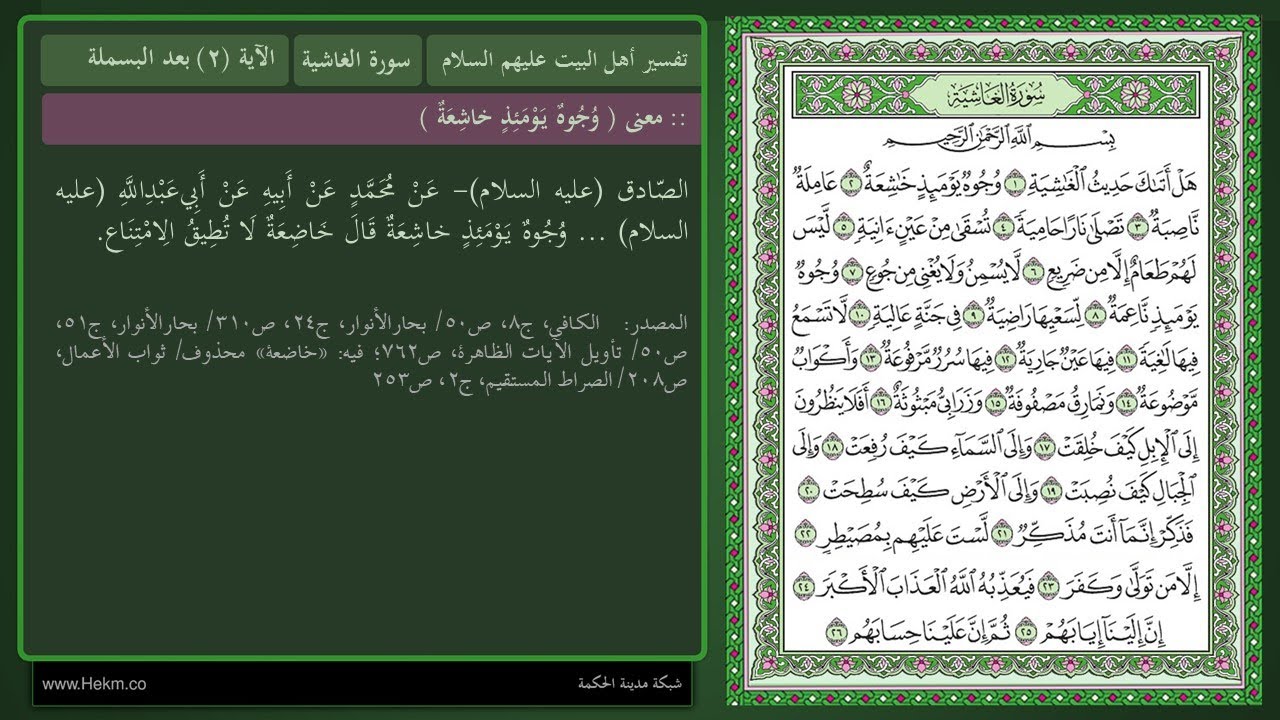 تفسير أهل البيت عليهم السلام
سورة الغاشية
الآية (٢) بعد البسملة
:: معنى ( وُجُوهٌ يَوْمَئِذٍ خاشِعَةٌ )
الصّادق (عليه السلام)- عَنْ مُحَمَّدٍ عَنْ أَبِيهِ عَنْ أَبِي‌عَبْدِاللَّهِ (عليه
السلام) ... وُجُوهٌ يَوْمَئِذٍ خاشِعَةٌ قَالَ خَاضِعَةٌ لَا تُطِيقُ الِامْتِنَاعِ.
المصدر: الكافي، ج٨، ص٥٠/ بحارالأنوار، ج١٤، ص٣١٠/ بحارالأنوار، ج٥١،
ص٥٠/ تأويل الآيات الظاهرة، ص٧٦٢؛ فيه: «خاضعة» محذوف/ ثواب الأعمال،
ص٢٠٨/ الصراط المستقيم، ج٢، ص٢٥٣
www.Hekm.co
شبكة مدينة الحكمة
سُورَةُ الغَاشِيَة
بِسْمِ اللَّهِ الرَّحْمَٰنِ الرَّحِيمِ
هَلْ أَتَىٰكَ حَدِيثُ الْغَٰشِيَةِ ١ وُجُوهٌ يَوْمَئِذٍ خَٰشِعَةٌ ٢ عَامِلَةٌ
نَّاصِبَةٌ ٣ تَصْلَىٰ نَارًا حَامِيَةً ٤ تُسْقَىٰ مِنْ عَيْنٍ ءَانِيَةٍ ٥ لَّيْسَ
لَهُمْ طَعَامٌ إِلَّا مِن ضَرِيعٍ ٦ لَّا يُسْمِنُ وَلَا يُغْنِي مِن جُوعٍ ٧ وُجُوهٌ
يَوْمَئِذٍ نَّاعِمَةٌ ٨ لِّسَعْيِهَا رَاضِيَةٌ ٩ فِي جَنَّةٍ عَالِيَةٍ ١٠ لَّا تَسْمَعُ
فِيهَا لَٰغِيَةً ١١ فِيهَا عَيْنٌ جَارِيَةٌ ١٢ فِيهَا سُرُرٌ مَّرْفُوعَةٌ ١٣ وَأَكْوَابٌ
مَّوْضُوعَةٌ ١٤ وَنَمَارِقُ مَصْفُوفَةٌ ١٥ وَزَرَابِيُّ مَبْثُوثَةٌ ١٦ أَفَلَا يَنظُرُونَ
إِلَى الْإِبِلِ كَيْفَ خُلِقَتْ ١٧ وَإِلَى السَّمَاءِ كَيْفَ رُفِعَتْ ١٨ وَإِلَى
الْجِبَالِ كَيْفَ نُصِبَتْ ١٩ وَإِلَى الْأَرْضِ كَيْفَ سُطِحَتْ ٢٠
فَذَكِّرْ إِنَّمَا أَنتَ مُذَكِّرٌ ٢١ لَّسْتَ عَلَيْهِم بِمُصَيْطِرٍ ٢٢
إِلَّا مَن تَوَلَّىٰ وَكَفَرَ ٢٣ فَيُعَذِّبُهُ اللَّهُ الْعَذَابَ الْأَكْبَرَ ٢٤
إِنَّ إِلَيْنَا إِيَابَهُمْ ٢٥ ثُمَّ إِنَّ عَلَيْنَا حِسَابَهُم ٢٦